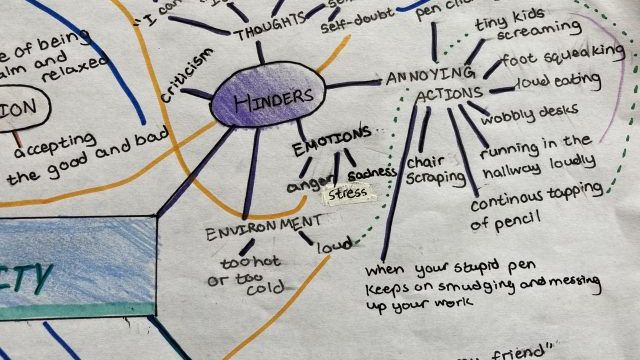 "I can
THOUGHTS
self-doubt
pen clic
tiny kids
screaming
foot squeaking
loud eating
wobbly desks
running in the
hallway loudly
continous tapping
of pencil
chair
scraping
ANNOYING
ACTIONS
when your stupid pen
keeps on smudging and messing
up your work
criticism
HINDERS
EMOTIONS
anger
sadness
stress
ENVIRONMENT
too hot
or too
cold
loud
e of being
alm and
relaxed
ION
accepting
the good and bad
ITY
my friend"